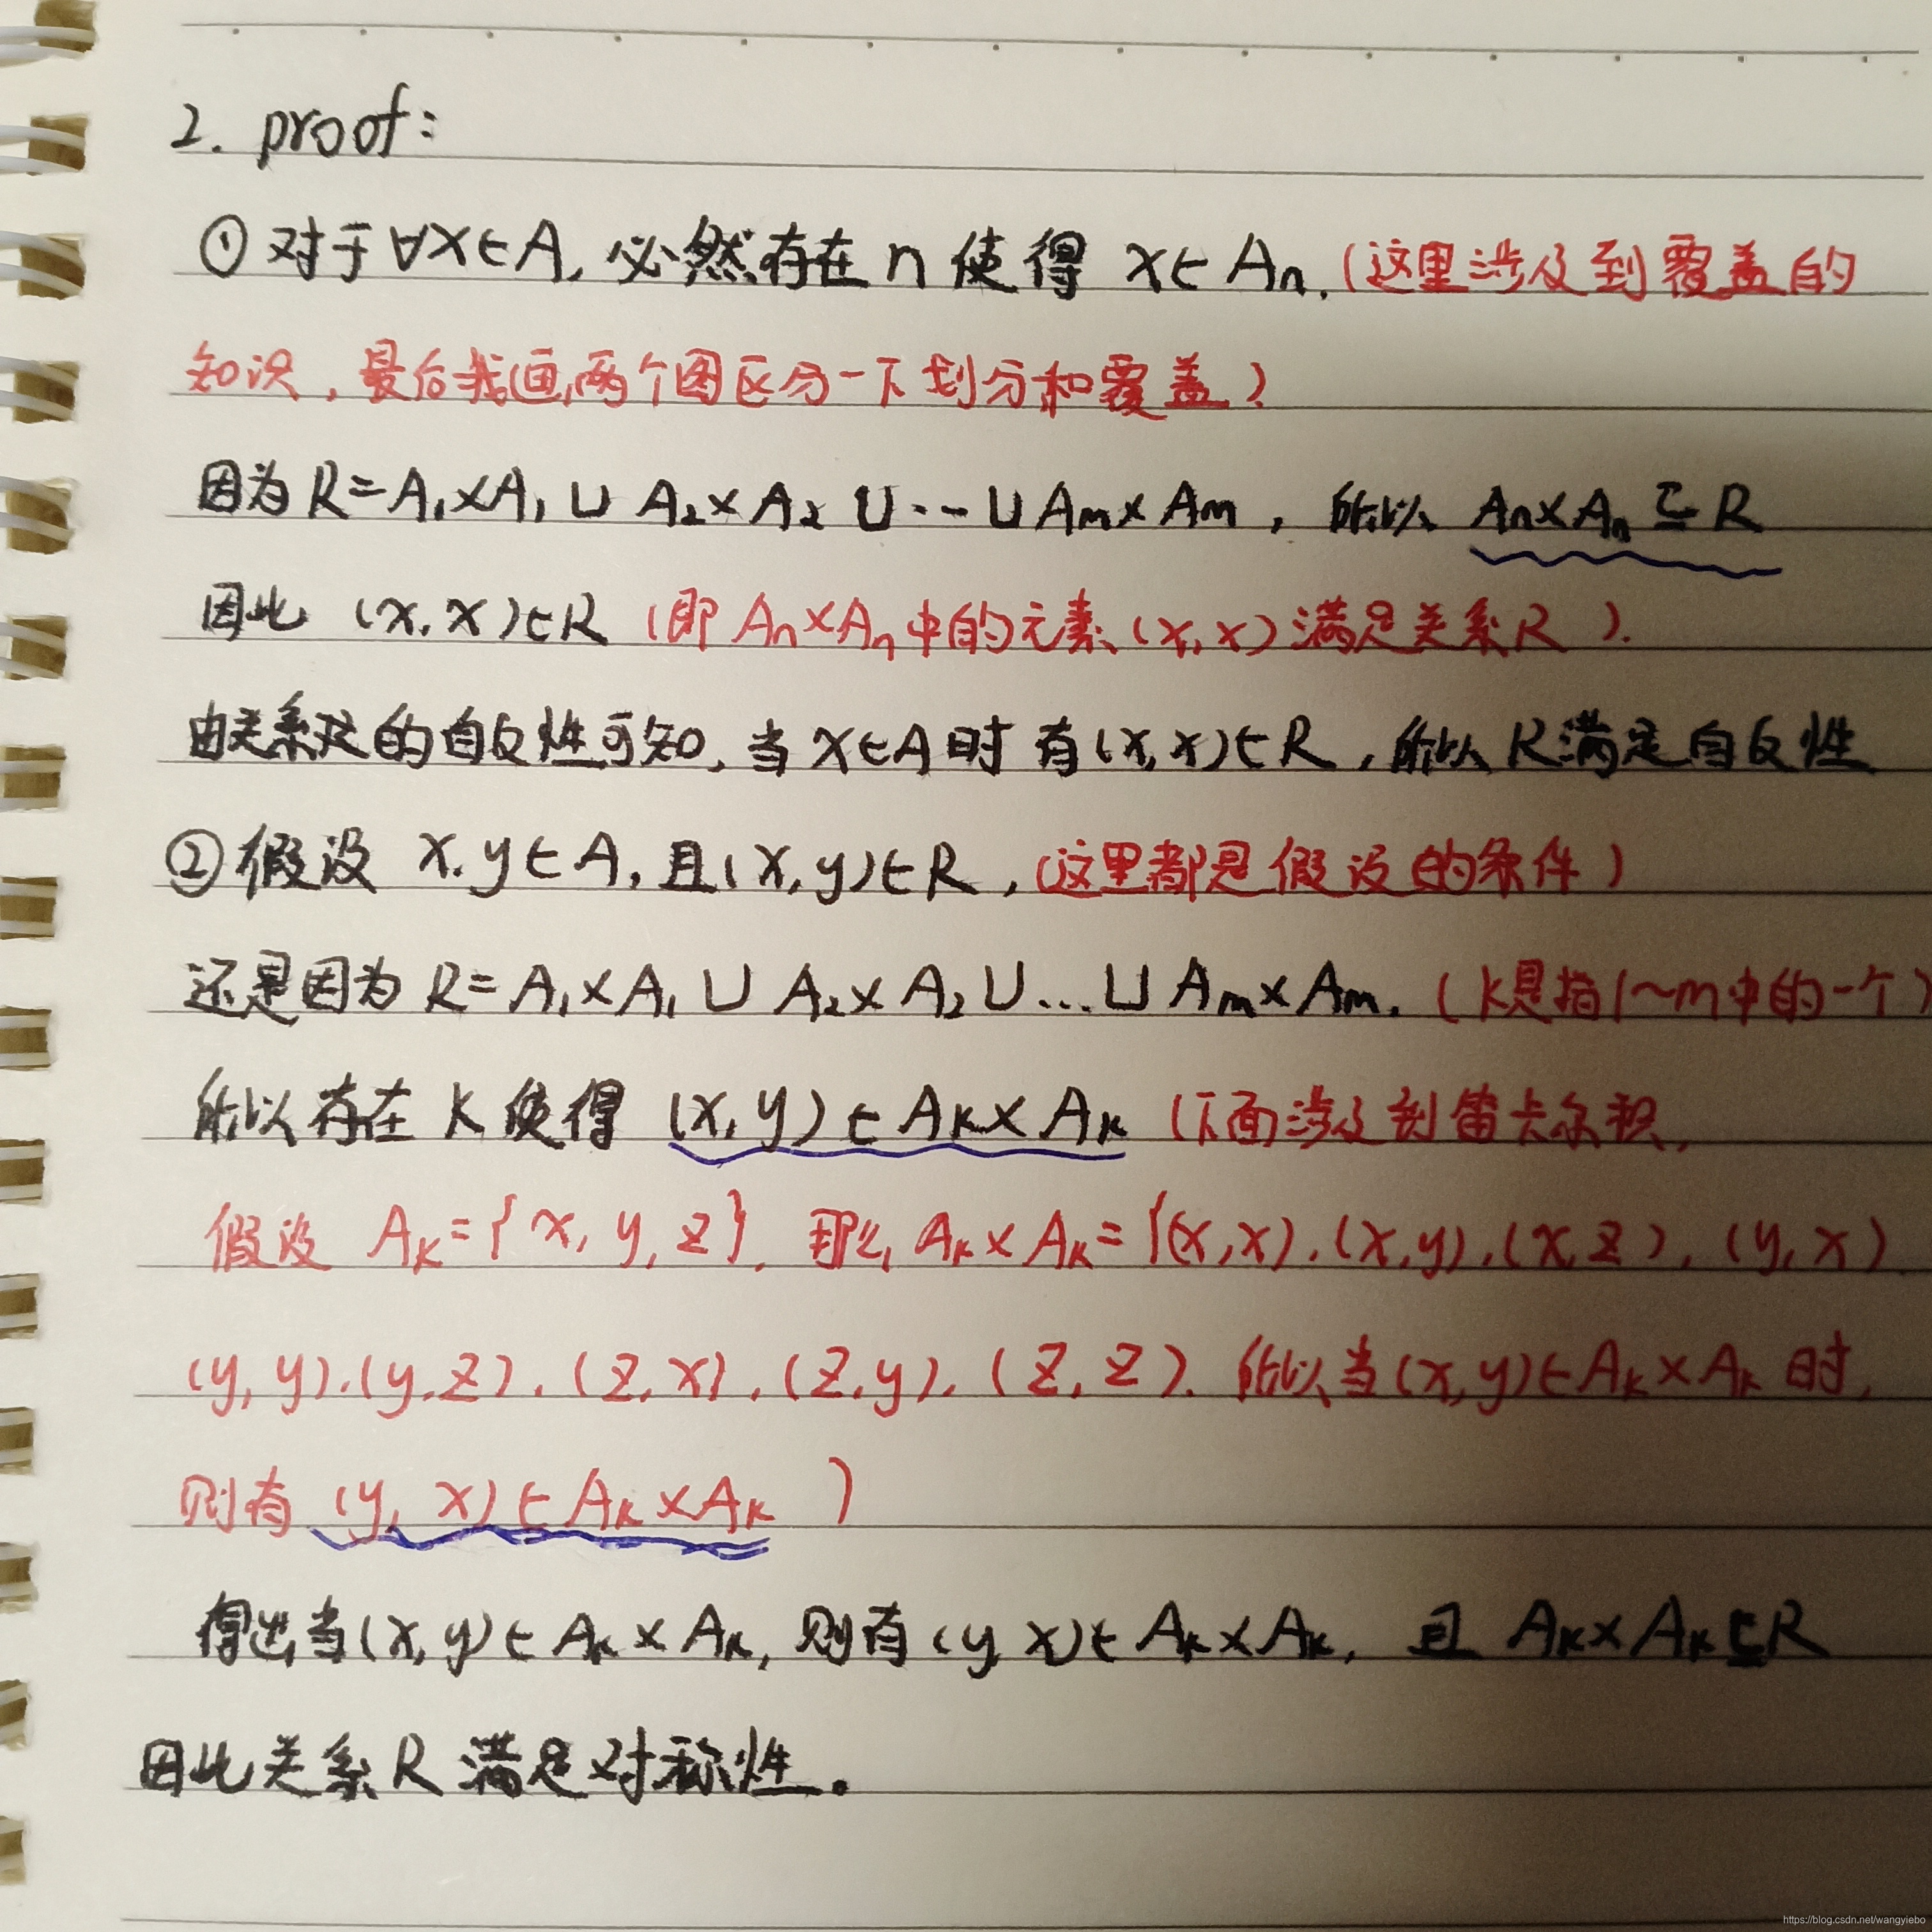 2. proof:
① 对于∀x∈A, 必然存在 n 使得 x∈An. (这里涉及到覆盖的
知识, 最后我画两个图区分一下划分和覆盖)
因为 R=A₁×A₁∪A₂×A₂∪···∪Am×Am, 所以 An×An⊆R
因此 (x,x)∈R (即 An×An中的元素(x,x)满足关系R).
由关系R的自反性可知, 当x∈A时 有(x,x)∈R, 所以 R满足自反性
② 假设 x,y∈A, 且(x,y)∈R, (这里都是假设的条件)
还是因为 R=A₁×A₁∪A₂×A₂∪...∪Am×Am. (k是指1~m中的一个)
所以存在 k 使得 (x,y)∈Ak×Ak (下面涉及到笛卡尔积,
假设 Ak={x,y,z}, 那么 Ak×Ak={(x,x),(x,y),(x,z),(y,x)
(y,y),(y,z),(z,x),(z,y),(z,z). 所以当(x,y)∈Ak×Ak时,
则有 (y,x)∈Ak×Ak )
得出当(x,y)∈Ak×Ak, 则有(y,x)∈Ak×Ak, 且 Ak×Ak⊆R
因此关系R满足对称性。
https://blog.csdn.net/wangyiebo